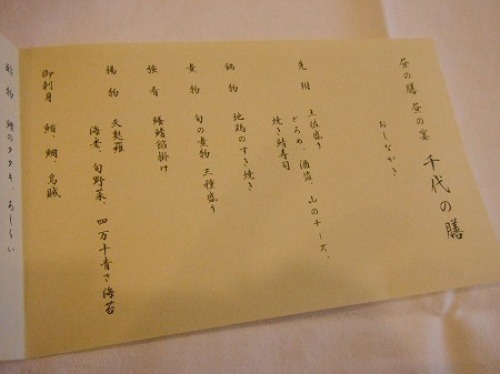 昼の膳 昼の宴 千代の膳
おしながき
先附 土佐盛り
どろめ、酒盗、山のチーズ、
焼き鯖寿司
鍋物 地鶏のすき焼き
煮物 旬の煮物 三種盛り
強肴 餡掛け
揚物 天麩羅
海老、旬野菜、四万十青さ海苔
御刺身 鮪、鯛、烏賊
酢物 鰹のタタキ、あしらい